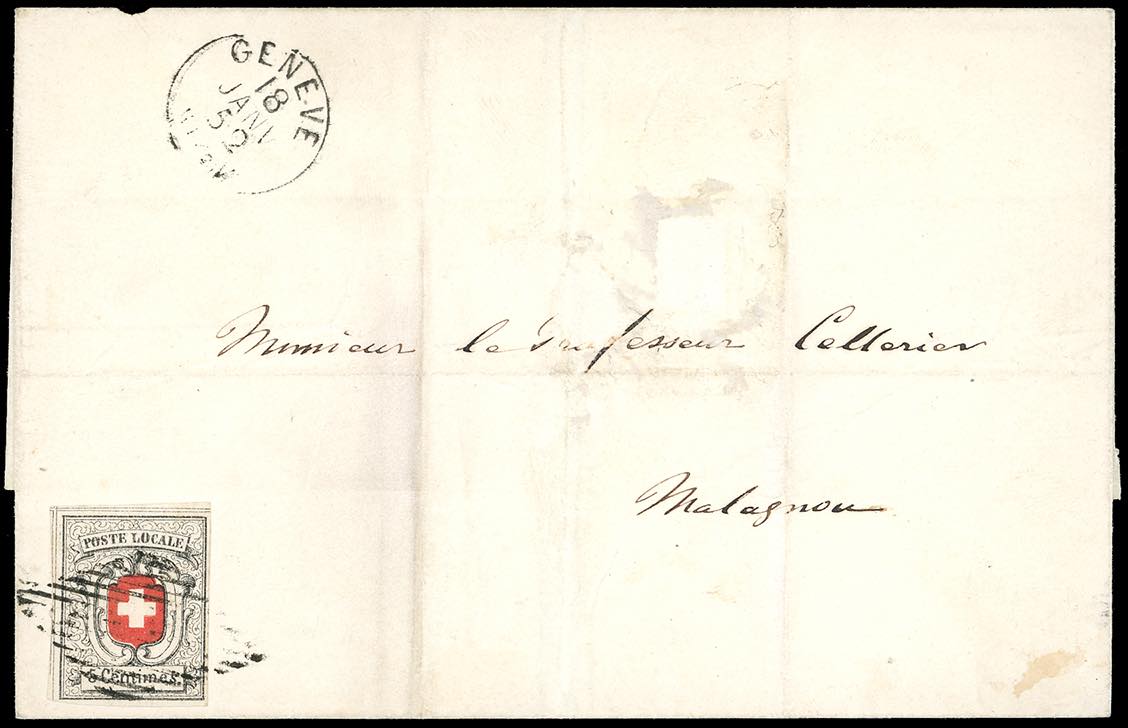 GENÈVE
18
JANV
52
Monsieur le Professeur Cellerier
Malagnou
POSTE LOCALE
5 Centimes.